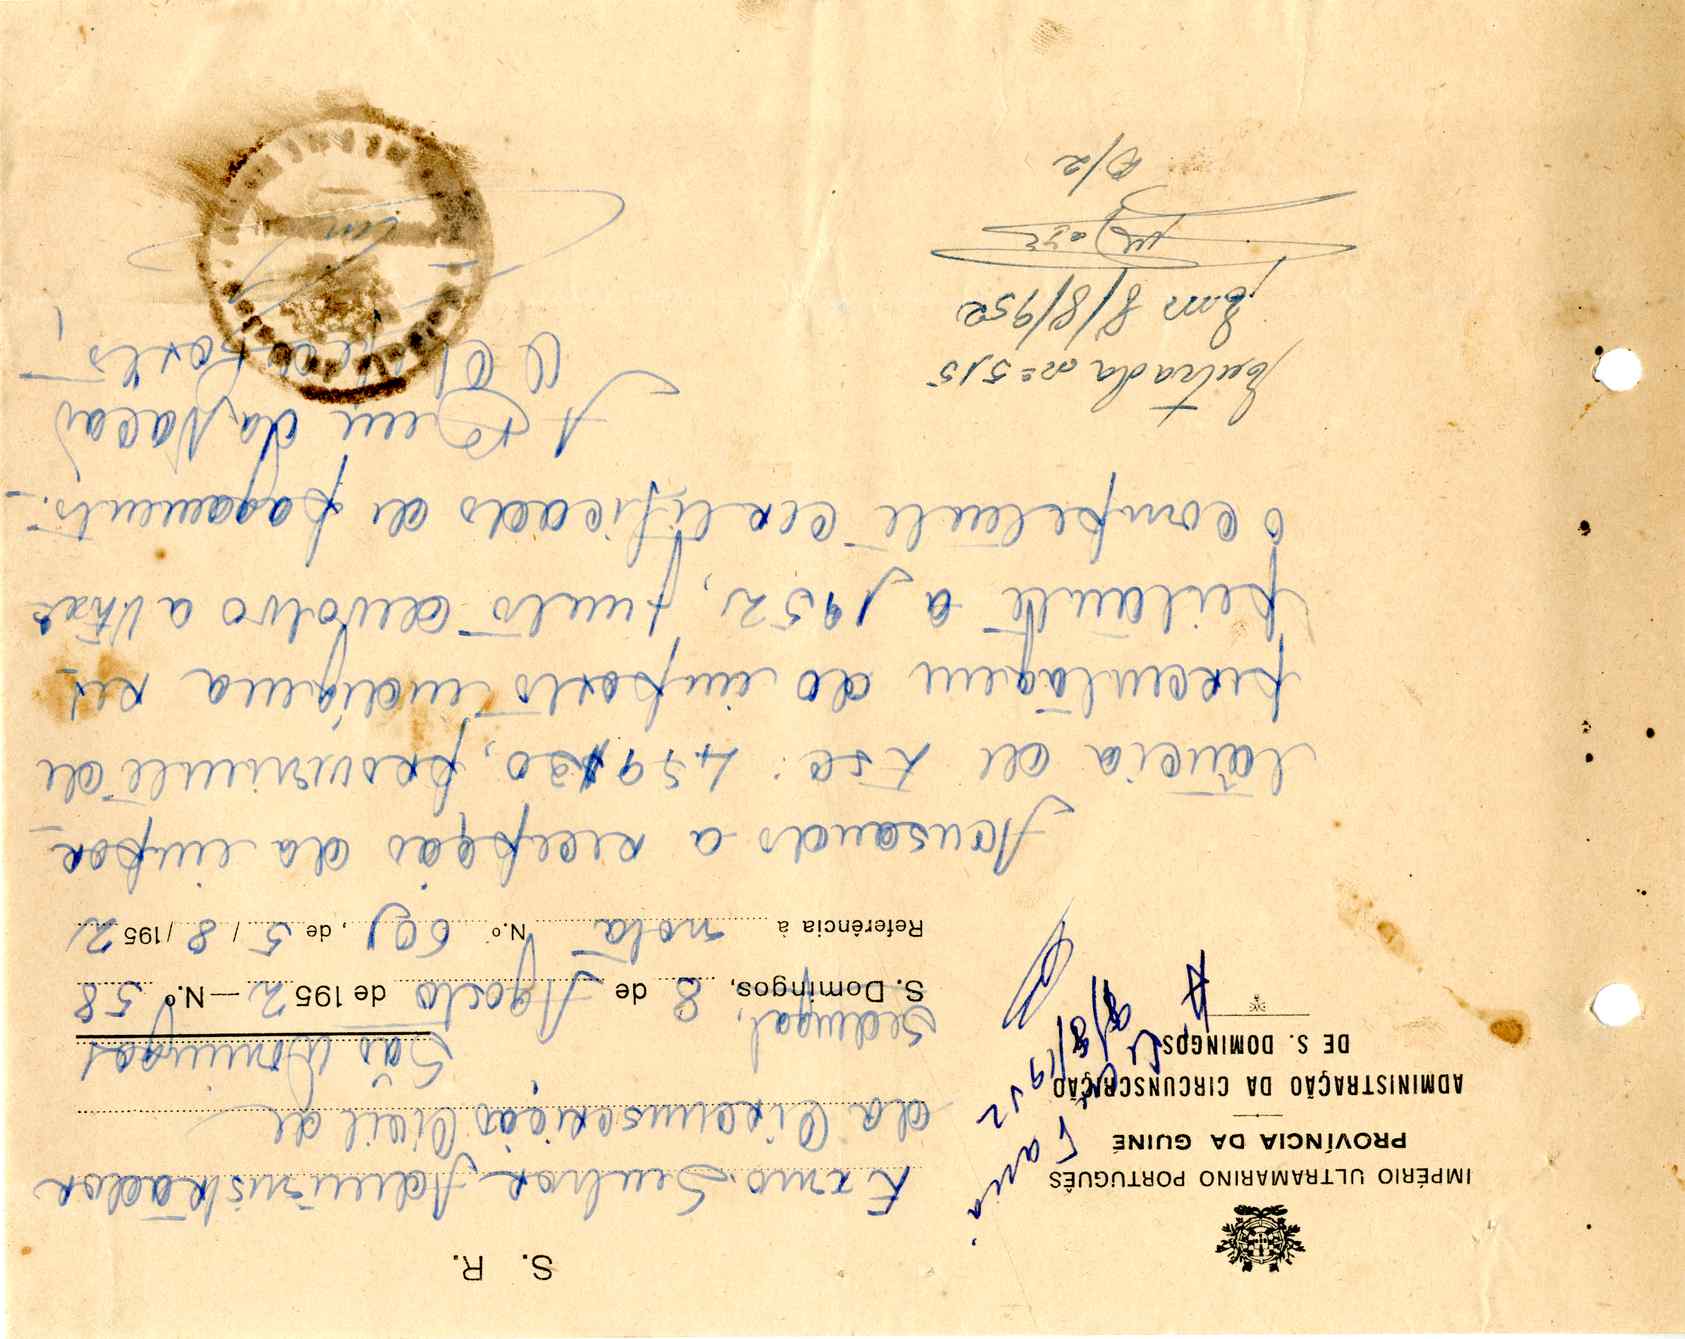 S. R.
IMPÉRIO ULTRAMARINO PORTUGUÊS
PROVÍNCIA DA GUINÉ
ADMINISTRAÇÃO DA CIRCUNSCRIÇÃO
DE S. DOMINGOS
Exmo. Senhor Administrador
da Circunscrição Civil de
São Domingos
Sedengal,
S. Domingos, 8 de Agosto de 1952 — N.º 58
Referência à nota N.º 601, de 5 / 8 / 1952
8/8/952
Acusando a recepção da impor
tância de Esc: 459$30, proveniente de
percentagem do imposto indígena res
peitante a 1952, junto devolvo a V. Exª
o competente certificado de pagamento.
A Bem da Nação
O Chefe do Posto,
Entrada nº 515
Em 8/8/952